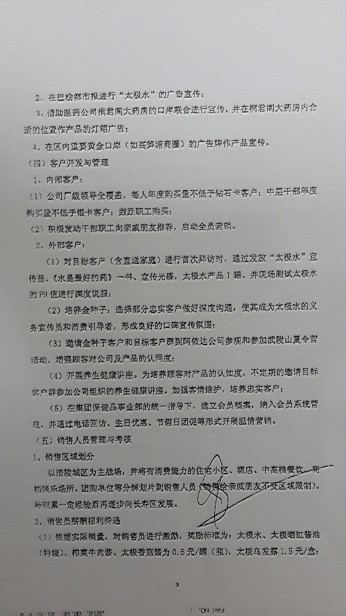 2、在巴渝都市报进行“太极水”的广告宣传；
3、借助医药公司桐君阁大药房的口岸联合进行宣传，并在桐君阁大药房内合
适的位置作产品的灯箱广告；
4、在区内重要黄金口岸（如高笋塘商圈）的广告牌作产品宣传。
（四）客户开发与管理
1、内部客户：
（1）公司厂级领导全覆盖，每人年度购买量不低于钻石卡客户；中层干部年度
购买量不低于银卡客户；鼓励职工购买；
（2）积极发动干部职工向亲戚朋友推荐，启动全员营销。
2、外部客户：
（1）对目标客户（含直送家庭）进行首次拜访时，通过发放“太极水”宣
传册、《水是最好的药》一书、宣传光碟，太极水产品1箱、并现场测试太极水
的PH值进行深度说服；
（2）培养金种子：选择部分忠实客户做好深度沟通，使其成为太极水的义
务宣传员和消费引导者，形成良好的口碑宣传氛围；
（3）邀请金种子客户和目标客户群到阿依达公司参观和参加武陵山夏令营
活动，增强顾客对公司及产品的认同度；
（4）开展养生健康讲座，为培养顾客对产品的认知度，不定期的邀请目标
客户群参加公司组织的养生健康讲座，加强客情维护，培养忠实客户；
（5）在集团保健品事业部的统一指导下，建立会员档案，纳入会员系统管
理，并通过电话回访、生日优惠、节假日团促等形式开展温情营销。
（五）销售人员管理与考核
1、销售区域划分
以涪陵城区为主战场，并将有消费能力的住宅小区、酒店、中高档餐饮、高
档娱乐场所、团购单位等分解划片到销售人员（销售给亲戚朋友不受区域限制）。
待积累一定经验后再逐步向长寿区发展。
2、销售员薪酬福利待遇
（1）依据实际销量，对销售员进行激励，奖励标准为：太极水、太极晒缸酱油
（特级）、榨菜牛肉酱、太极香菇酱为0.5元/罐（瓶），太极乌发露1.5元/盒；